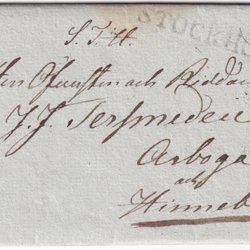 STOCKH
S. T. H.
Öfwersten och Riddar
J. J. Tersmeden
Arboga
och
Hinseb